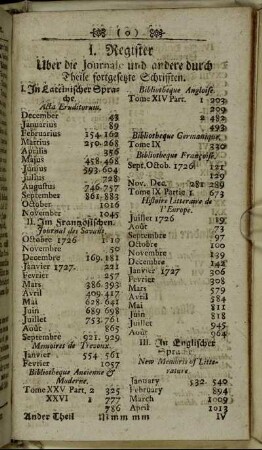 ( o )
I. Register
Uber die Journale und andere durch
Theile fortgesetzte Schrifften.
I. In Lateinischer Spra-
che.
Acta Eruditorum.
December 43
Januarius 89
Februarius 154. 162
Martius 250. 268
Aprilis 356
Majus 458. 468
Junius 593. 604
Julius 728
Augustus 746. 757
September 861. 883
October 1016
November 1045
II. Im Frantzösischen.
Journal des Savans.
Octobre 1726 1. 10
Novembre 50
Decembre 169. 181
Janvier 1727. 221
Fevrier
Mars 386. 393
Avril 409. 417
Mai 628. 641
Juin 689. 698
Juillet 753. 761
Août 865
Septembre 921. 929
Memoires de Trevoux.
Janvier 554. 561
Fevrier 1057
Bibliotheque Ancienne &
Moderne.
Tome XXV Part. 2 325
XXVI 1 777
786
Ander Theil
Bibliotheque Angloise.
Tome XIV Part. 1 203
209
2 482
493
Bibliotheque Germanique.
Tome IX 330
Bibliotheque Françoise.
Sept. Octob. 1726 121
Nov. Dec. 281 289
Tome IX Partie 1 673
Histoire Litteraire de
l'Europe.
Juillet 1726 19
Août 73
Septembre 97
Octobre 100
Novembre 139
Decembre 142
Janvier 1727 306
Fevrier 380
Mars 579
Avril 384
Mai 606
Juin 818
Juillet 945
Août 964
III. In Englischer
Sprache.
New Memoirs of Litte-
rature.
January 532. 540
February 882
March 1009
April 1013
IV